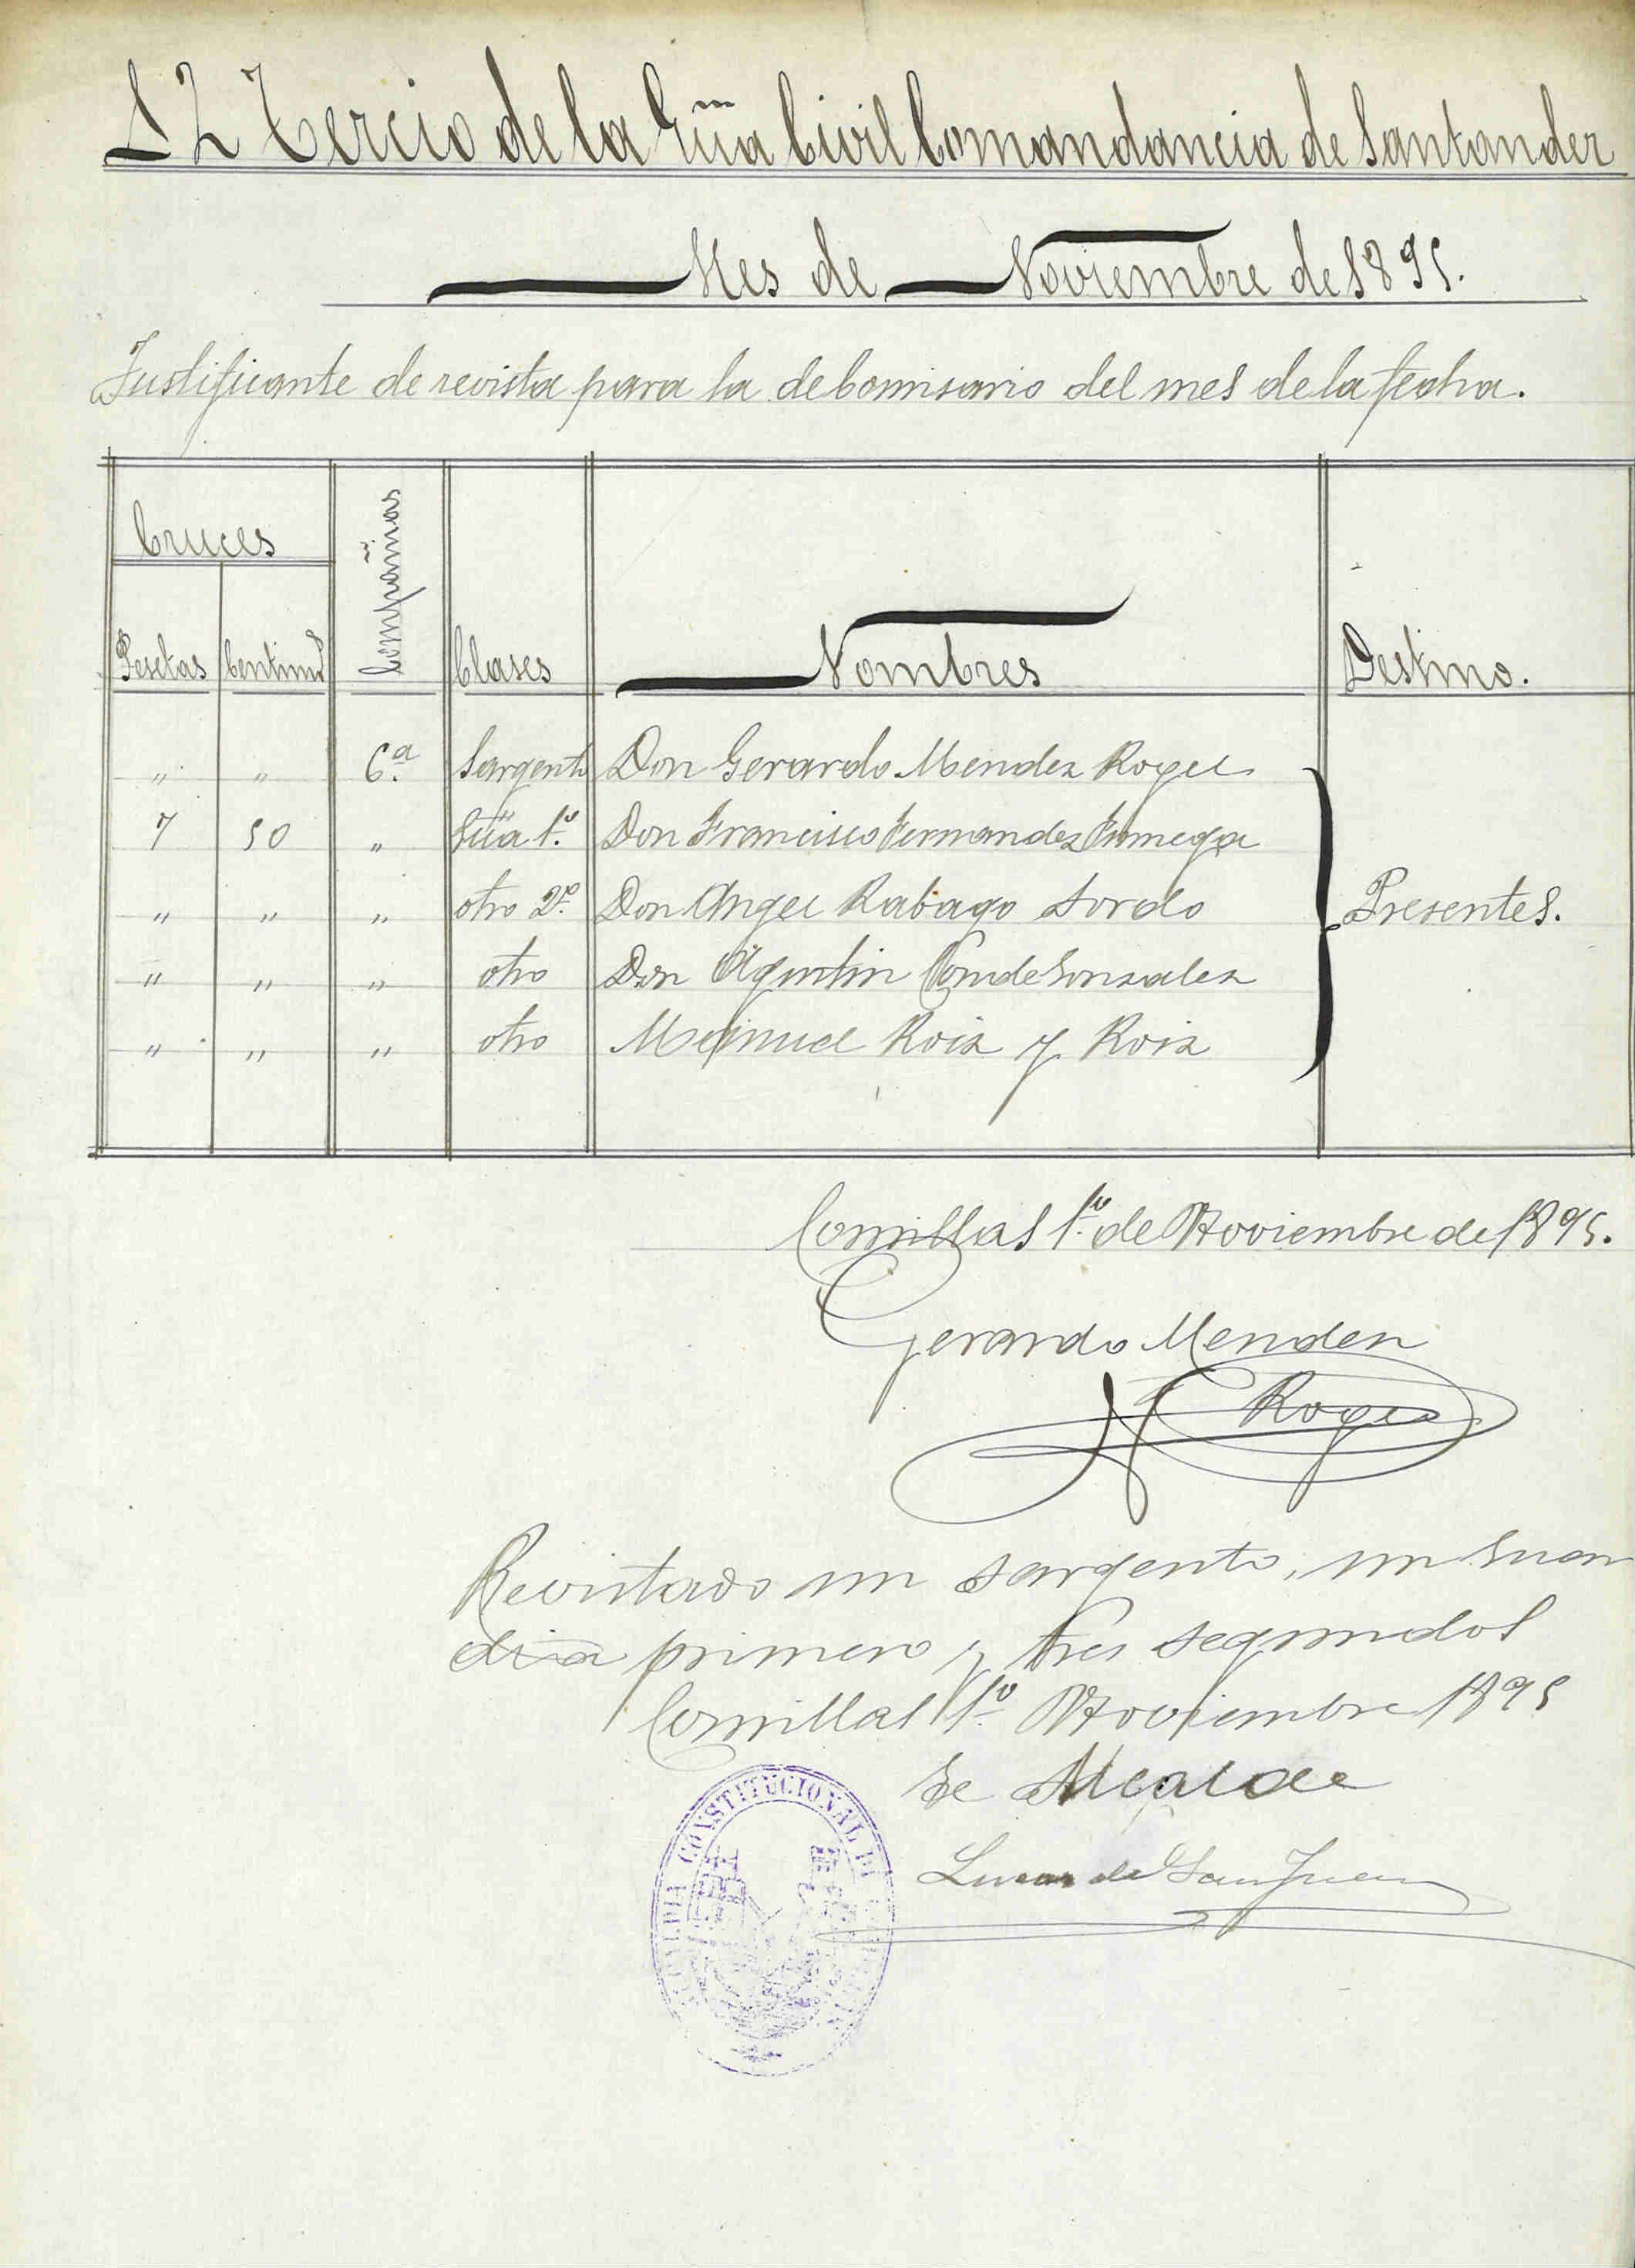 12 Tercio de la Gũa Civil Comandancia de Santander
Mes de Noviembre de 1895.
Justificante de revista para la de Comisario del mes de la fecha.
Cruces
Pesetas Centimˢ Compañias Clases Nombres Destino.
" " 6.ª Sargento Don Gerardo Mendez Roger
7 50 " Gũa 1.º Don Francisco Fernandez
" " " otro 2.º Don Angel Rabago Sordo
" " " otro Don Agustin Conde Gonzalez
" " " otro Manuel Roiz y Roiz
Presentes.
Comillas 1.º de Noviembre de 1895.
Gerardo Mendez
Roger
Revistado un sargento, un Guar
dia primero y tres segundos
Comillas 1.º Noviembre 1895
El Alcalde
Lucas de San Juan
ALCALDIA CONSTITUCIONAL DE